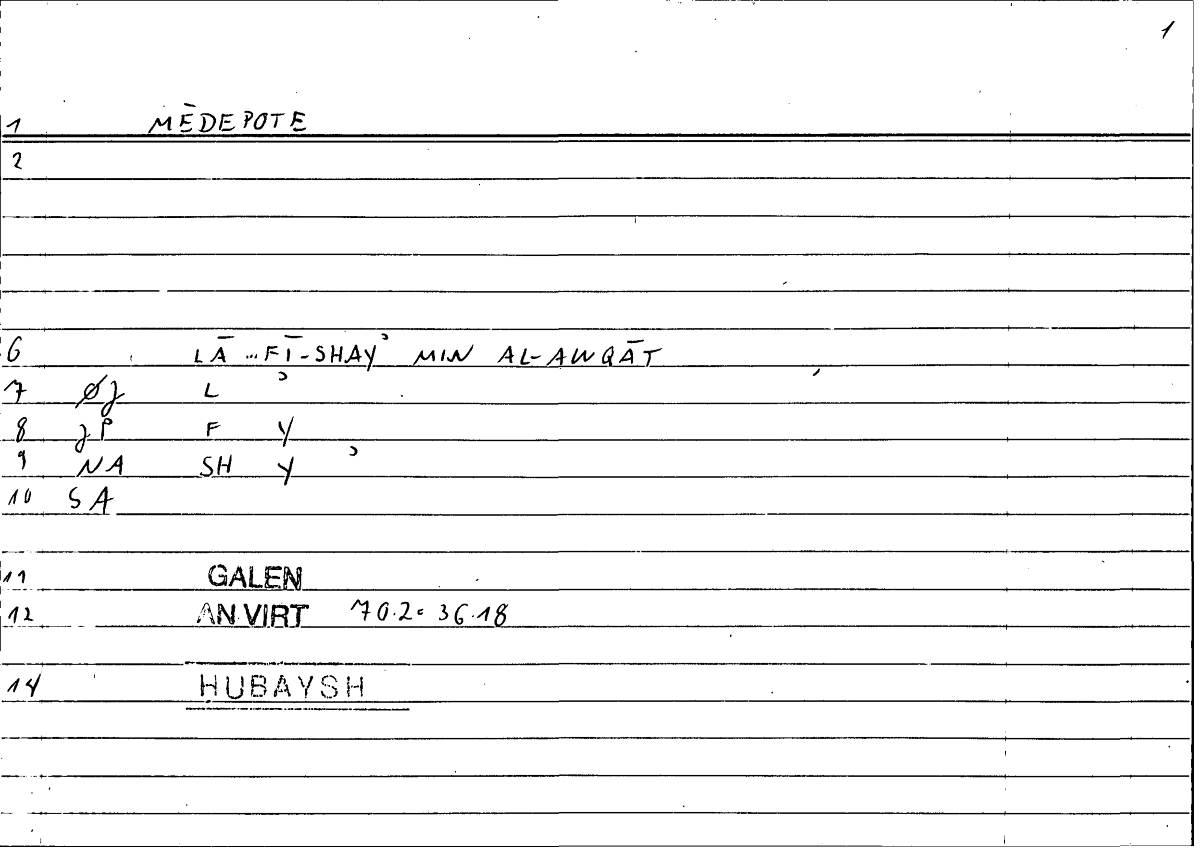 1
1 MĒDEPOTE
2
6 LĀ ... FĪ-SHAYʾ MIN AL-AWQĀT
7 Øʒ L ʾ
8 ʒP F Y
9 NA SH Y ʾ
10 SA
11 GALEN
12 AN VIRT 70.2 = 36.18
14 ḤUBAYSH